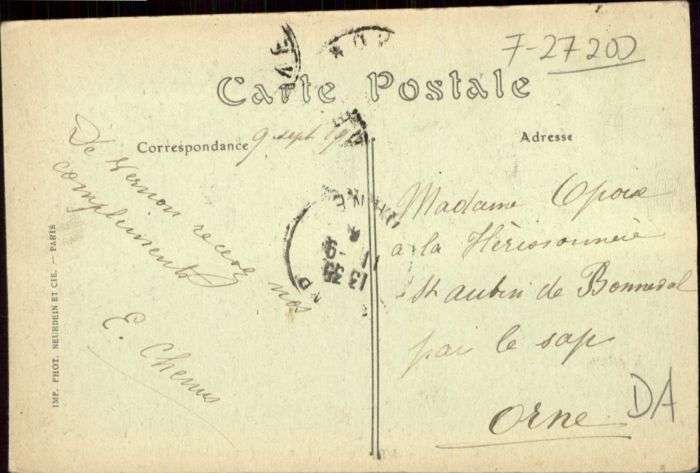 7-27200
Carte Postale
Correspondance 9 sept
Adresse
De Vernon recevez nos
compliments
E.
Madame
à la
St aubin de Bonneval
par le sap
Orne
DA
13 35
11 - 9
IMP. PHOT. NEURDEIN ET CIE. — PARIS